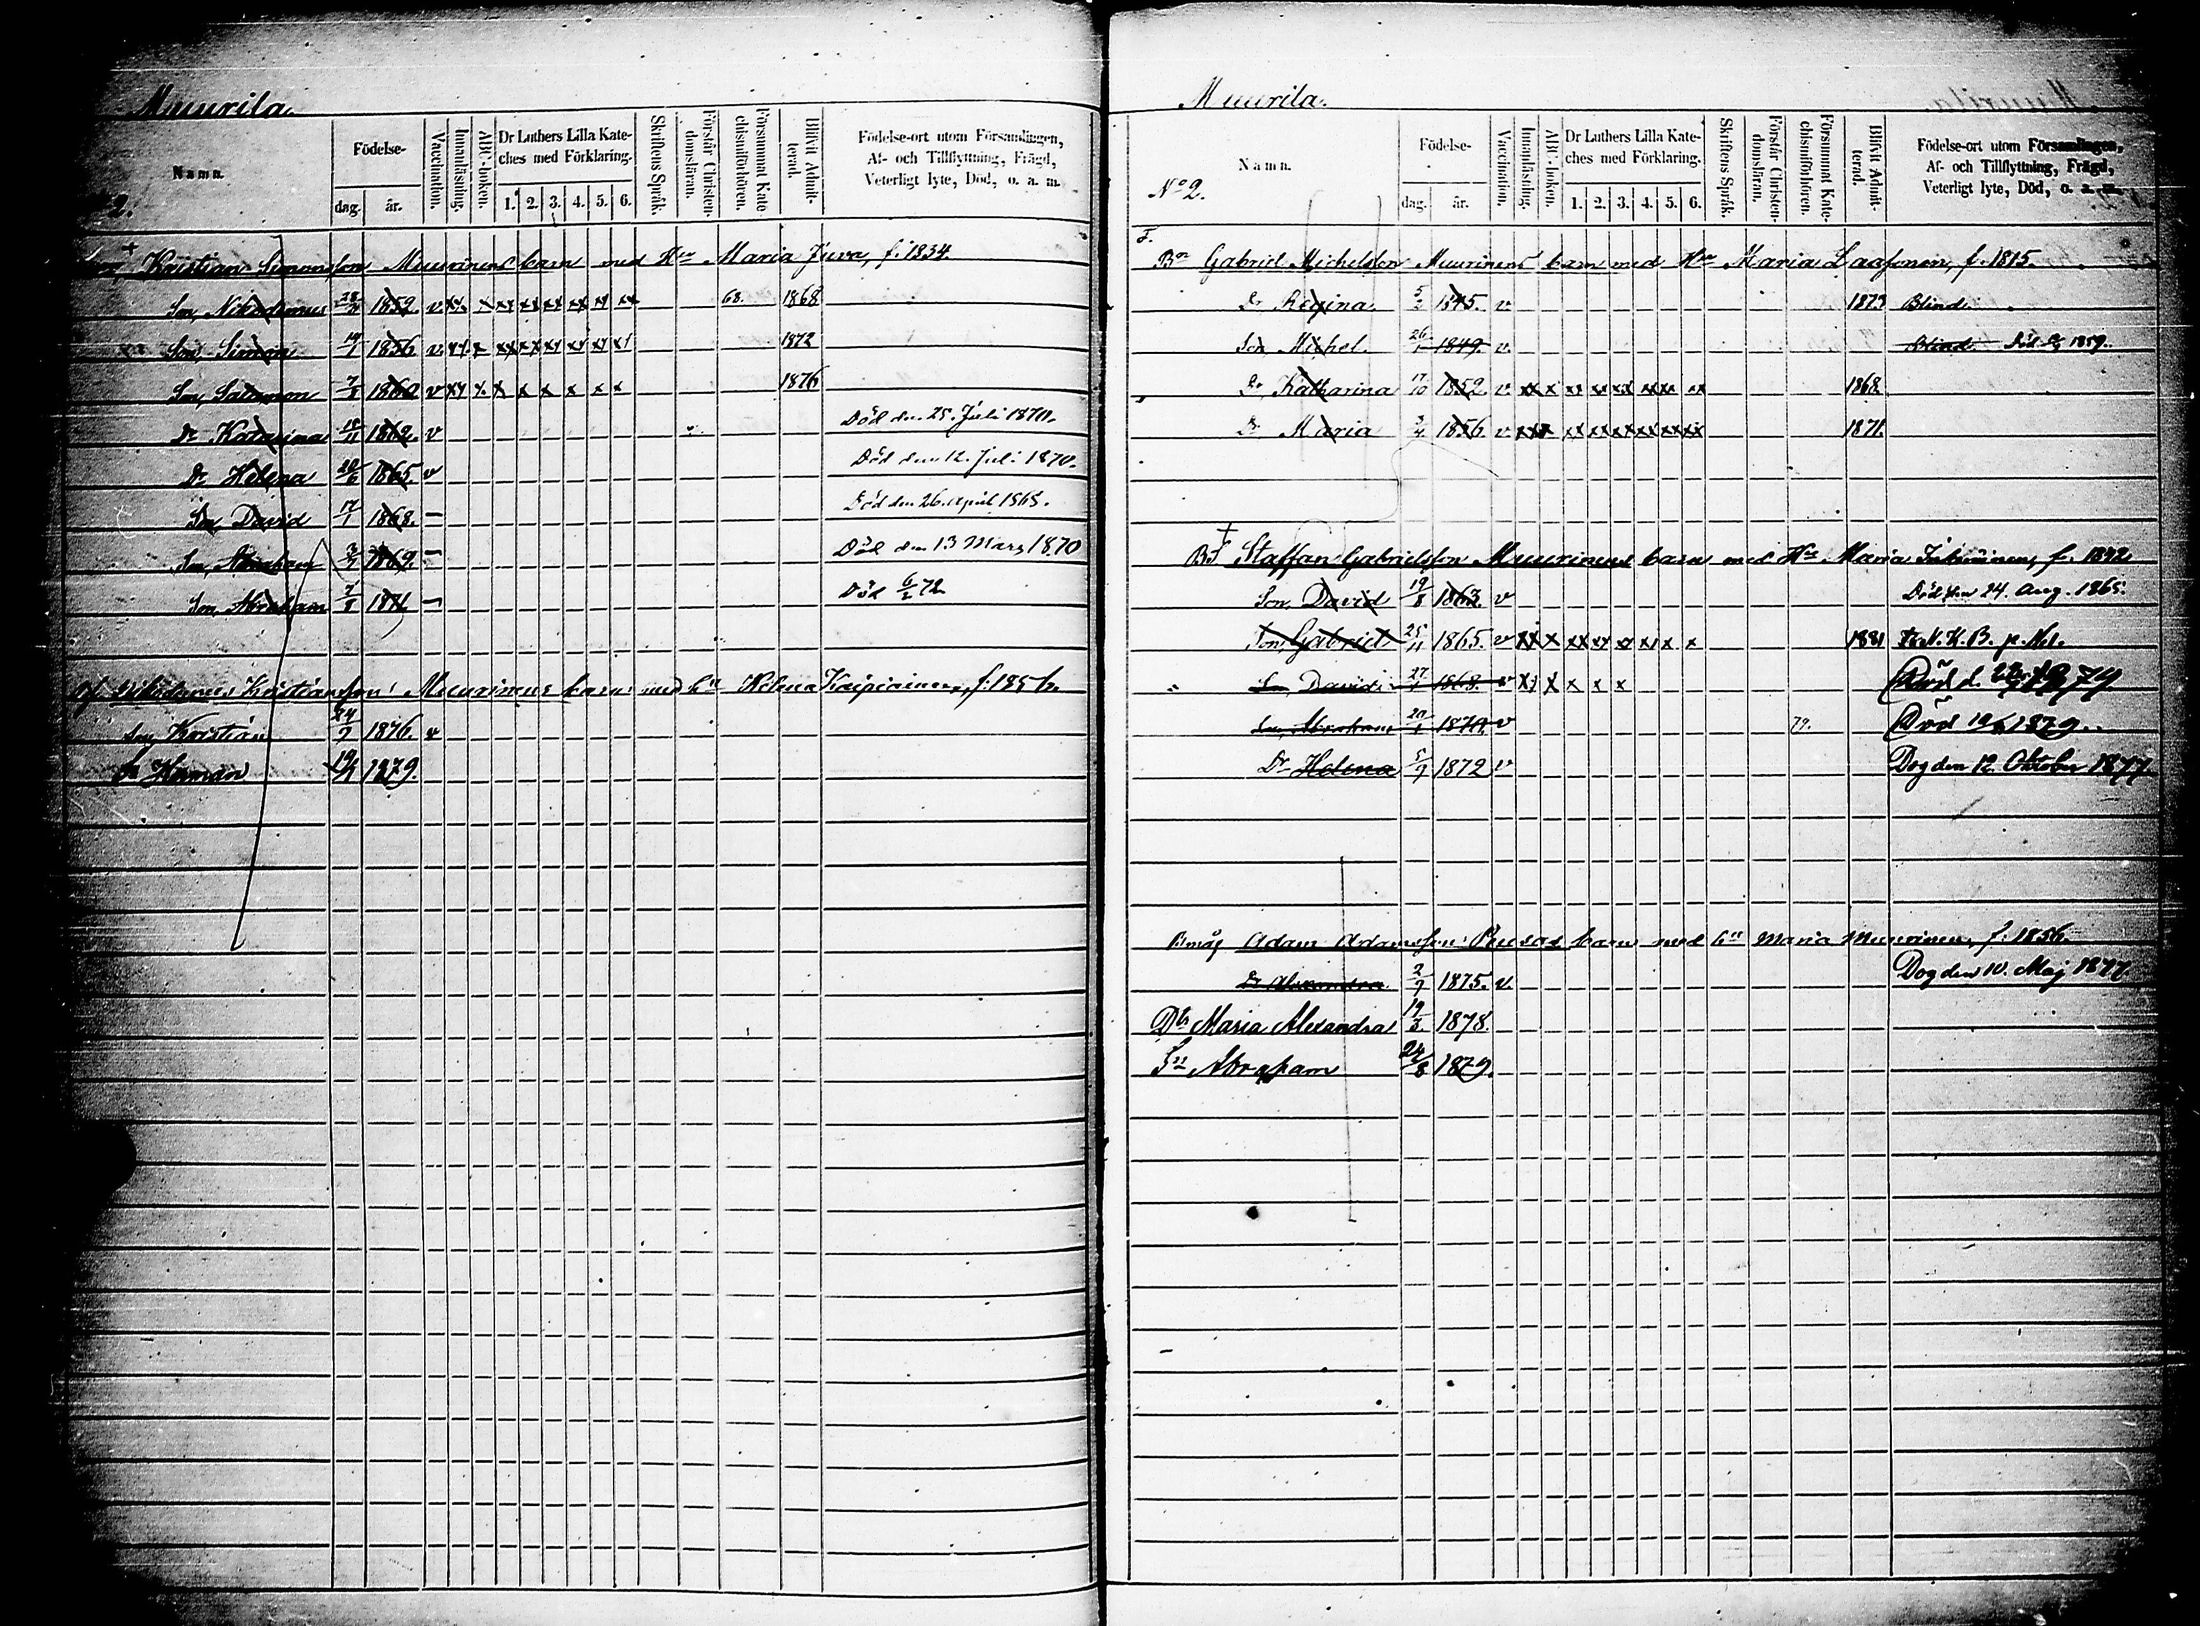 Muurila.
Namn.
Födelse-
dag.
år.
Vaccination.
Innanläsning.
ABC-boken.
Dr Luthers Lilla Kate-
ches med Förklaring.
1. 2. 3. 4. 5. 6.
Skriftens Språk.
Förstår Christen-
domsläran.
Försummat Kate-
chismiförhören.
Blifvit Admit-
terad.
Födelse-ort utom Församlingen,
Af- och Tillflyttning, Frägd,
Veterligt lyte, Död, o. a. m.
2.
Kristian Simonsson Muurinens barn med Hu Maria Juva, f. 1834.
Son, Nikodemus 1852. v. 68. 1868
Son Simon 1856 v. 1872
Son, Salomon 7/8 1860 v 1876
Dr Katarina 1862. v Död den 25. Juli 1870.
Dr Helena 20/6 1865. v Död den 12. Juli 1870.
Son, David 17/1 1868. — Död den 26. April 1868.
Son, Abraham 1869. — Död den 13 Mars 1870
Son Abraham 7/8 1871 — Död 6/2 72
Nikodemus Kristiansson Muurinens barn med hu Helena Kaipiainen, f. 1856.
Son Kristian 24/9 1876. v
Sn Herman 1879.
Muurila.
Namn.
Födelse-
dag.
år.
Vaccination.
Innanläsning.
ABC-boken.
Dr Luthers Lilla Kate-
ches med Förklaring.
1. 2. 3. 4. 5. 6.
Skriftens Språk.
Förstår Christen-
domsläran.
Försummat Kate-
chismiförhören.
Blifvit Admit-
terad.
Födelse-ort utom Församlingen,
Af- och Tillflyttning, Frägd,
Veterligt lyte, Död, o. a. m.
No 2.
Bn Gabriel Michelsson Muurinens barn med Hu Maria Laasonen, f. 1815.
Dr Regina 5/2 1845. v. 1873 Blind.
Son Michel 26/1 1849. v. Blind. Död 1859.
Dr Katharina 17/10 1852 v 1868
Dr Maria 3/4 1856 v. 1871.
Staffan Gabrielsson Muurinens barn med Hu Maria f. 1842.
Son, David 19/8 1863. v Död den 24. Aug. 1865.
Son, Gabriel 25/11 1865. v 1881 N. K. B. p.
Son David 27/1 1868. v Död d.
Son, Abraham 20/1 1870. v 79. Död 1879.
Dr Helena 5/9 1872 v Dog den 12. Oktober 1877.
Bmåg Adam Adamsson barn med hu Maria Muurinen, f. 1856.
Dr Alexandra 2/9 1875. v. Dog den 10. Maj 1877.
Dtr Maria Alexandra 19/3. 1878.
Sn Abraham 24/8 1879.